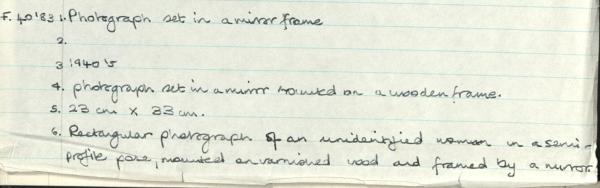 F. 40'83 1. Photograph set in a mirror frame
2.
3 1940's
4. photograph set in a mirror mounted on a wooden frame.
5. 23 cm x 33 cm.
6. Rectangular photograph of an unidentified woman in a semi-
profile pose, mounted on varnished wood and framed by a mirror